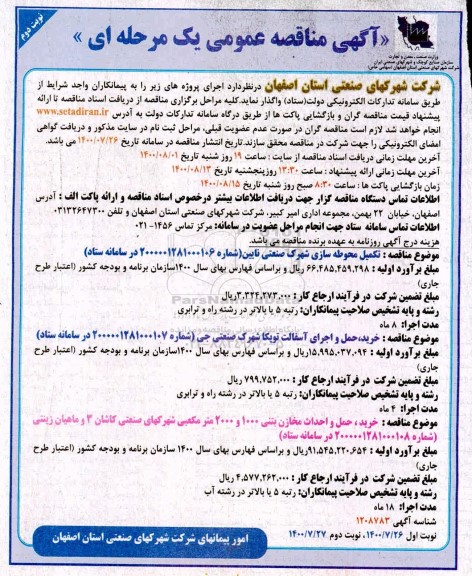 نوبت دوم
«آگهی مناقصه عمومی یک مرحله ای»
وزارت صنعت، معدن و تجارت
سازمان صنایع کوچک و شهرکهای صنعتی ایران
شرکت شهرکهای صنعتی استان اصفهان (سهامی خاص)
شرکت شهرکهای صنعتی استان اصفهان درنظردارد اجرای پروژه های زیر را به پیمانکاران واجد شرایط از
طریق سامانه تدارکات الکترونیکی دولت(ستاد) واگذار نماید.کلیه مراحل برگزاری مناقصه از دریافت اسناد مناقصه تا ارائه
پیشنهاد قیمت مناقصه گران و بازگشایی پاکت ها از طریق درگاه سامانه تدارکات دولت به آدرس www.setadiran.ir
انجام خواهد شد لازم است مناقصه گران در صورت عدم عضویت قبلی، مراحل ثبت نام در سایت مذکور و دریافت گواهی
امضای الکترونیکی را جهت شرکت در مناقصه محقق سازند.تاریخ انتشار مناقصه در سامانه تاریخ ۱۴۰۰/۰۷/۲۶ می باشد.
آخرین مهلت زمانی دریافت اسناد مناقصه از سایت : ساعت ۱۹ روز شنبه تاریخ ۱۴۰۰/۰۸/۰۱
آخرین مهلت زمانی ارائه پیشنهاد : ساعت ۱۳:۳۰ روزپنجشنبه تاریخ ۱۴۰۰/۰۸/۱۳
زمان بازگشایی پاکت ها : ساعت ۸:۳۰ صبح روز شنبه تاریخ ۱۴۰۰/۰۸/۱۵
اطلاعات تماس دستگاه مناقصه گزار جهت دریافت اطلاعات بیشتر درخصوص اسناد مناقصه و ارائه پاکت الف : آدرس
اصفهان، خیابان ۲۲ بهمن، مجموعه اداری امیر کبیر، شرکت شهرکهای صنعتی استان اصفهان و تلفن ۰۳۱۳۲۶۴۷۳۰۰
اطلاعات تماس سامانه ستاد جهت انجام مراحل عضویت در سامانه: مرکز تماس ۱۴۵۶-۰۲۱
هزینه درج آگهی روزنامه به عهده برنده مناقصه می باشد.
موضوع مناقصه : تکمیل محوطه سازی شهرک صنعتی نایین(شماره ۲۰۰۰۰۰۱۲۸۱۰۰۰۱۰۶ در سامانه ستاد)
مبلغ برآورد اولیه : ۶۶.۴۸۵.۴۵۹.۲۹۸ ریال و براساس فهارس بهای سال ۱۴۰۰سازمان برنامه و بودجه کشور (اعتبار طرح
جاری)
مبلغ تضمین شرکت در فرآیند ارجاع کار : ۳.۳۲۴.۲۷۳.۰۰۰ریال
رشته و پایه تشخیص صلاحیت پیمانکاران: رتبه ۵ یا بالاتر در رشته راه و ترابری
مدت اجرا: ۸ ماه
موضوع مناقصه : خرید،حمل و اجرای آسفالت توپکا شهرک صنعتی جی (شماره ۲۰۰۰۰۰۱۲۸۱۰۰۰۱۰۷ در سامانه ستاد)
مبلغ برآورد اولیه : ۱۵.۹۹۵.۰۳۷.۰۹۴ریال و براساس فهارس بهای سال ۱۴۰۰سازمان برنامه و بودجه کشور (اعتبار طرح
جاری)
مبلغ تضمین شرکت در فرآیند ارجاع کار : ۷۹۹.۷۵۲.۰۰۰ ریال
رشته و پایه تشخیص صلاحیت پیمانکاران: رتبه ۵ یا بالاتر در رشته راه و ترابری
مدت اجرا: ۴ ماه
موضوع مناقصه : خرید ، حمل و احداث مخازن بتنی ۱۰۰۰ و ۲۰۰۰ متر مکعبی شهرکهای صنعتی کاشان ۳ و ماهیان زینتی
(شماره ۲۰۰۰۰۰۱۲۸۱۰۰۰۱۰۸ در سامانه ستاد)
مبلغ برآورد اولیه : ۹۱.۵۴۵.۲۲۰.۶۵۴ریال و براساس فهارس بهای سال ۱۴۰۰ سازمان برنامه و بودجه کشور (اعتبار طرح
جاری)
مبلغ تضمین شرکت در فرآیند ارجاع کار : ۴.۵۷۷.۲۶۲.۰۰۰ ریال
رشته و پایه تشخیص صلاحیت پیمانکاران: رتبه ۵ یا بالاتر در رشته آب
مدت اجرا: ۱۸ ماه
شناسه آگهی ۱۲۰۸۷۸۳
نوبت اول ۱۴۰۰/۷/۲۶ ، نوبت دوم ۱۴۰۰/۷/۲۷
امور پیمانهای شرکت شهرکهای صنعتی استان اصفهان